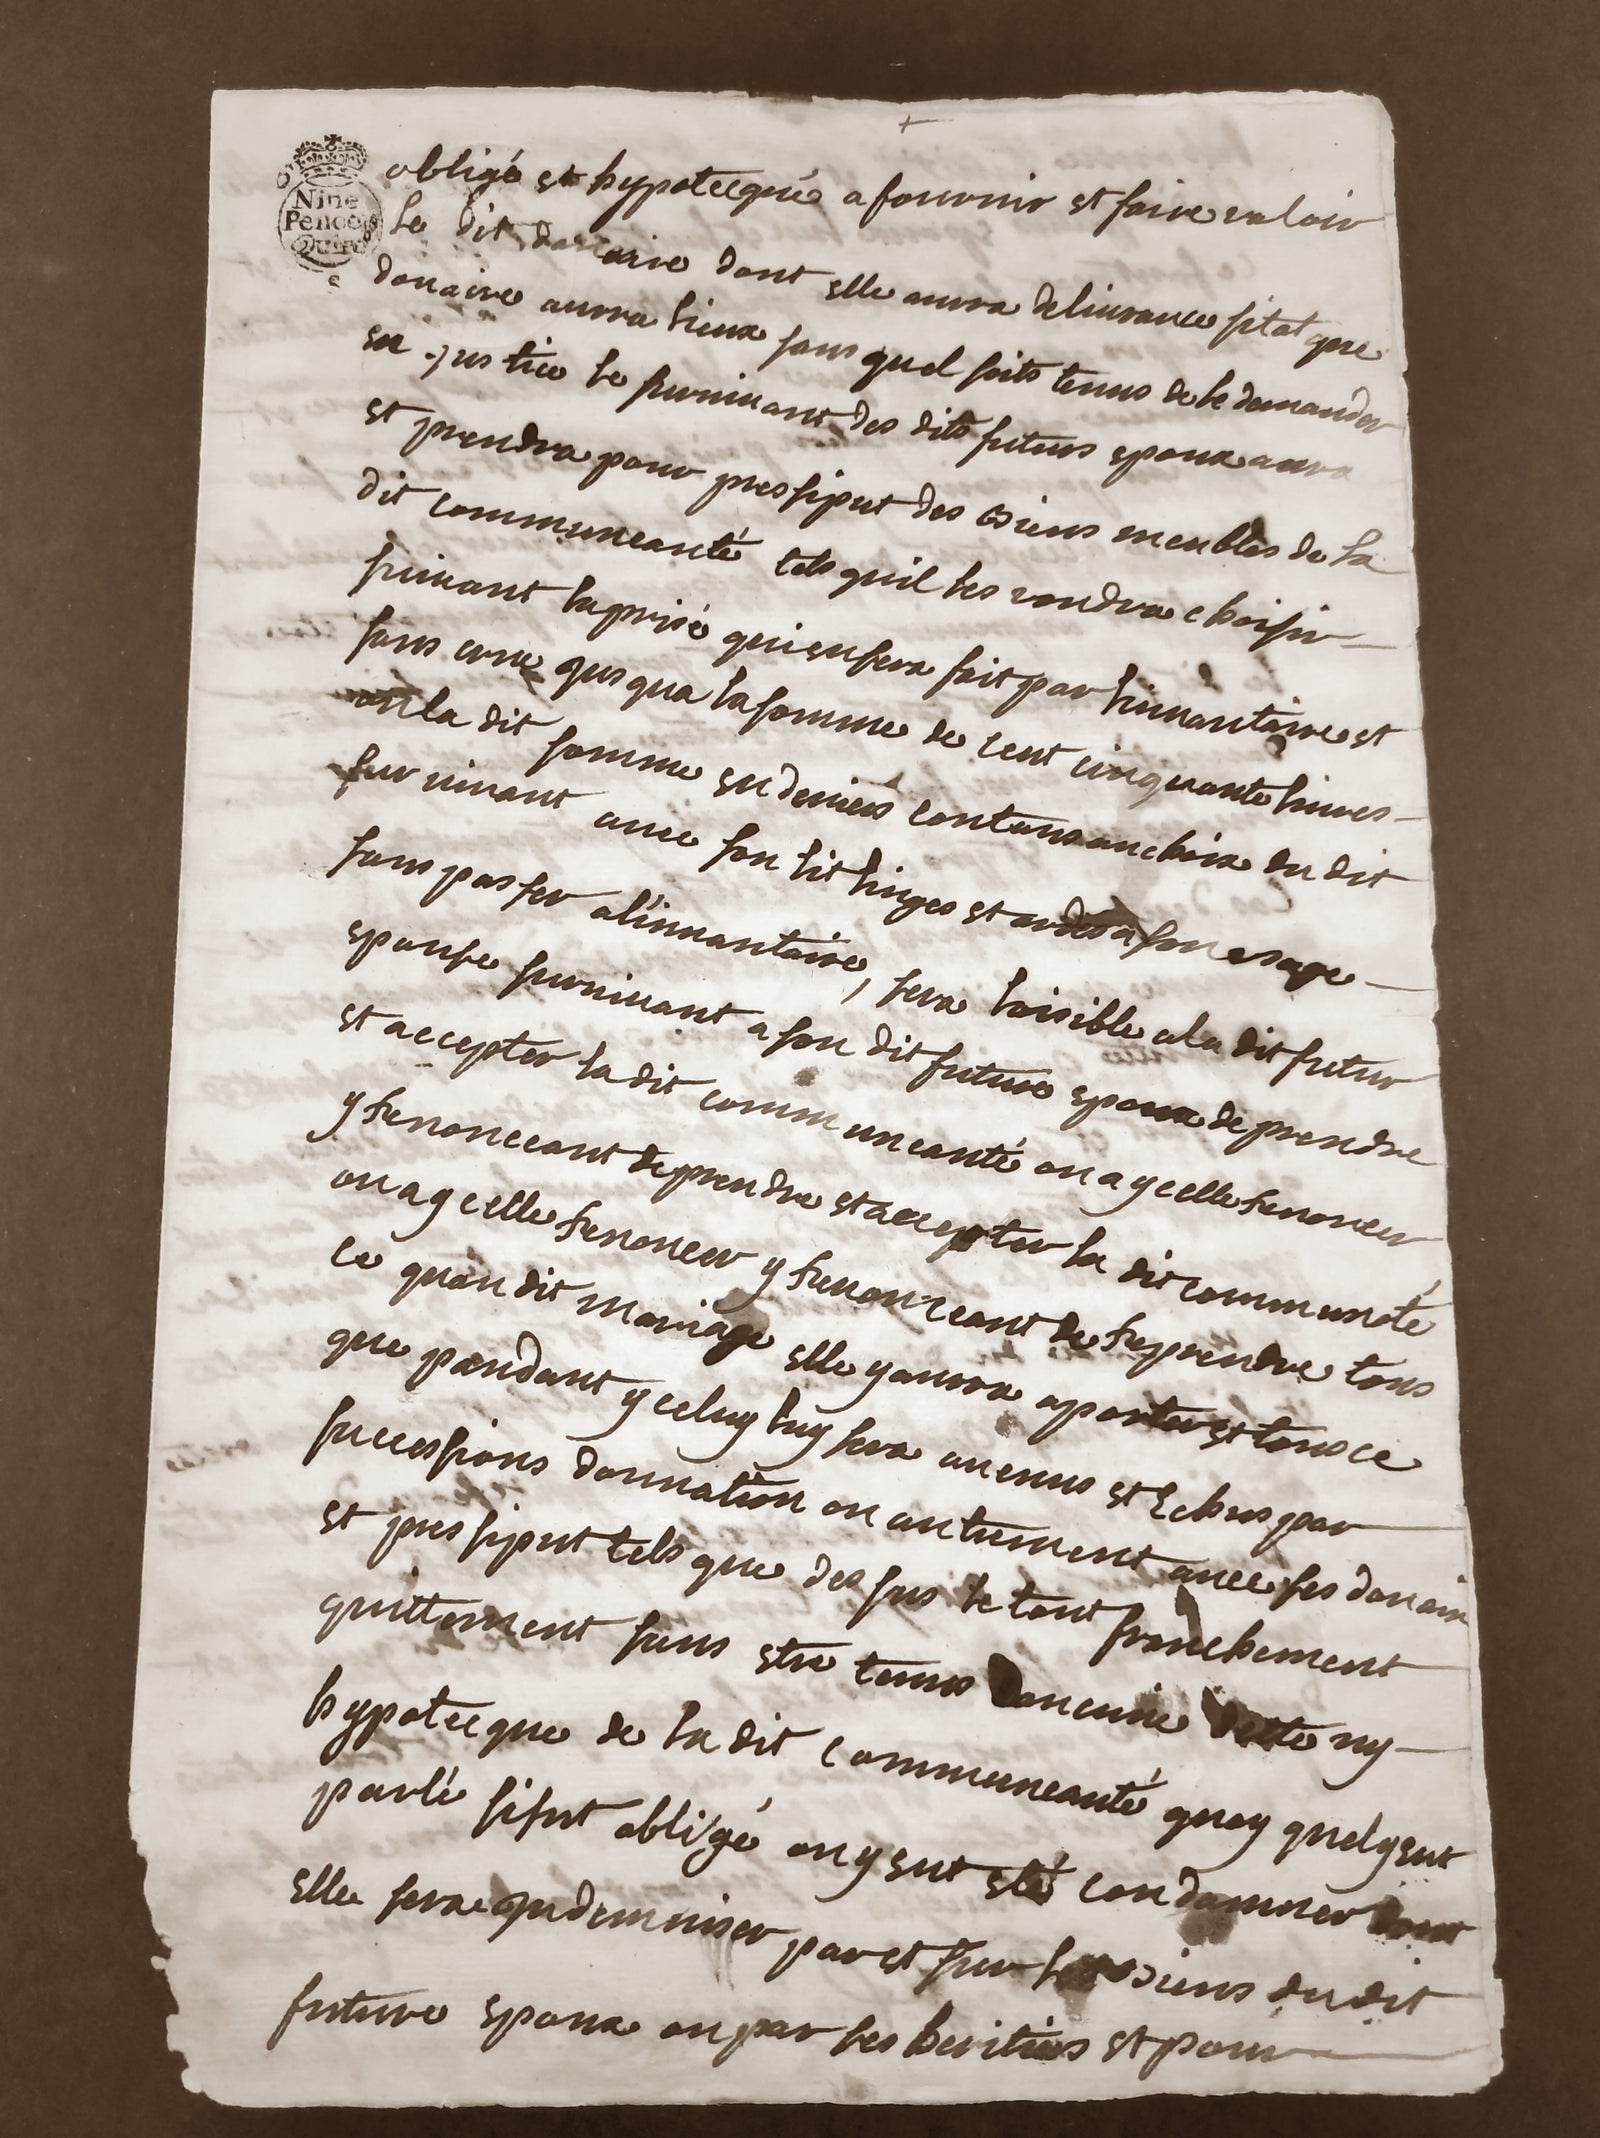 Nine
Pence pr
Quire
obligé et hypotecqué a fournir et faire valoir
le dit douaire dont elle aura delivrance sitot que
douaire aurra lieux sans quel soits tenus de le demander
en justice le survivant des dits futurs epoux aura
et prendra pour pressiput des Biens meubles de la
dit communeauté tels quil les voudra choisir
suivant la prisé qui en sera fait par linvantaire et
sans crue qus qua la somme de cent cinquante livres
ou la dit somme en deniers contans au choix du dit
survivant avec son lit linges et ardes a son usage
sans passer alinvantaire, sera loisible ala dit futur
epouse survivant a son dit future epoux de prendre
et accepter la dit communeauté ou a ycelle renoncer
y renonceant de prendre et accepter la dit communoté
ou a ycelle renoncer y renonceant de reprendre tous
ce quau dit mariage elle y aurra aporter et tous ce
que pendant yceluy luy sera avenus et Echus par
successions donnation ou autrement avec ses douair
et pressiput tels que des sus le tout franchement
quittement sans etre tenus daucune dette ny
hypotecque de la dit communeauté quoy quel y eut
parlé sifut obligé ou y eut eté condamner dont
elle sera yndemniser par et sur les Biens du dit
future epoux ou par ses heritiers et pour